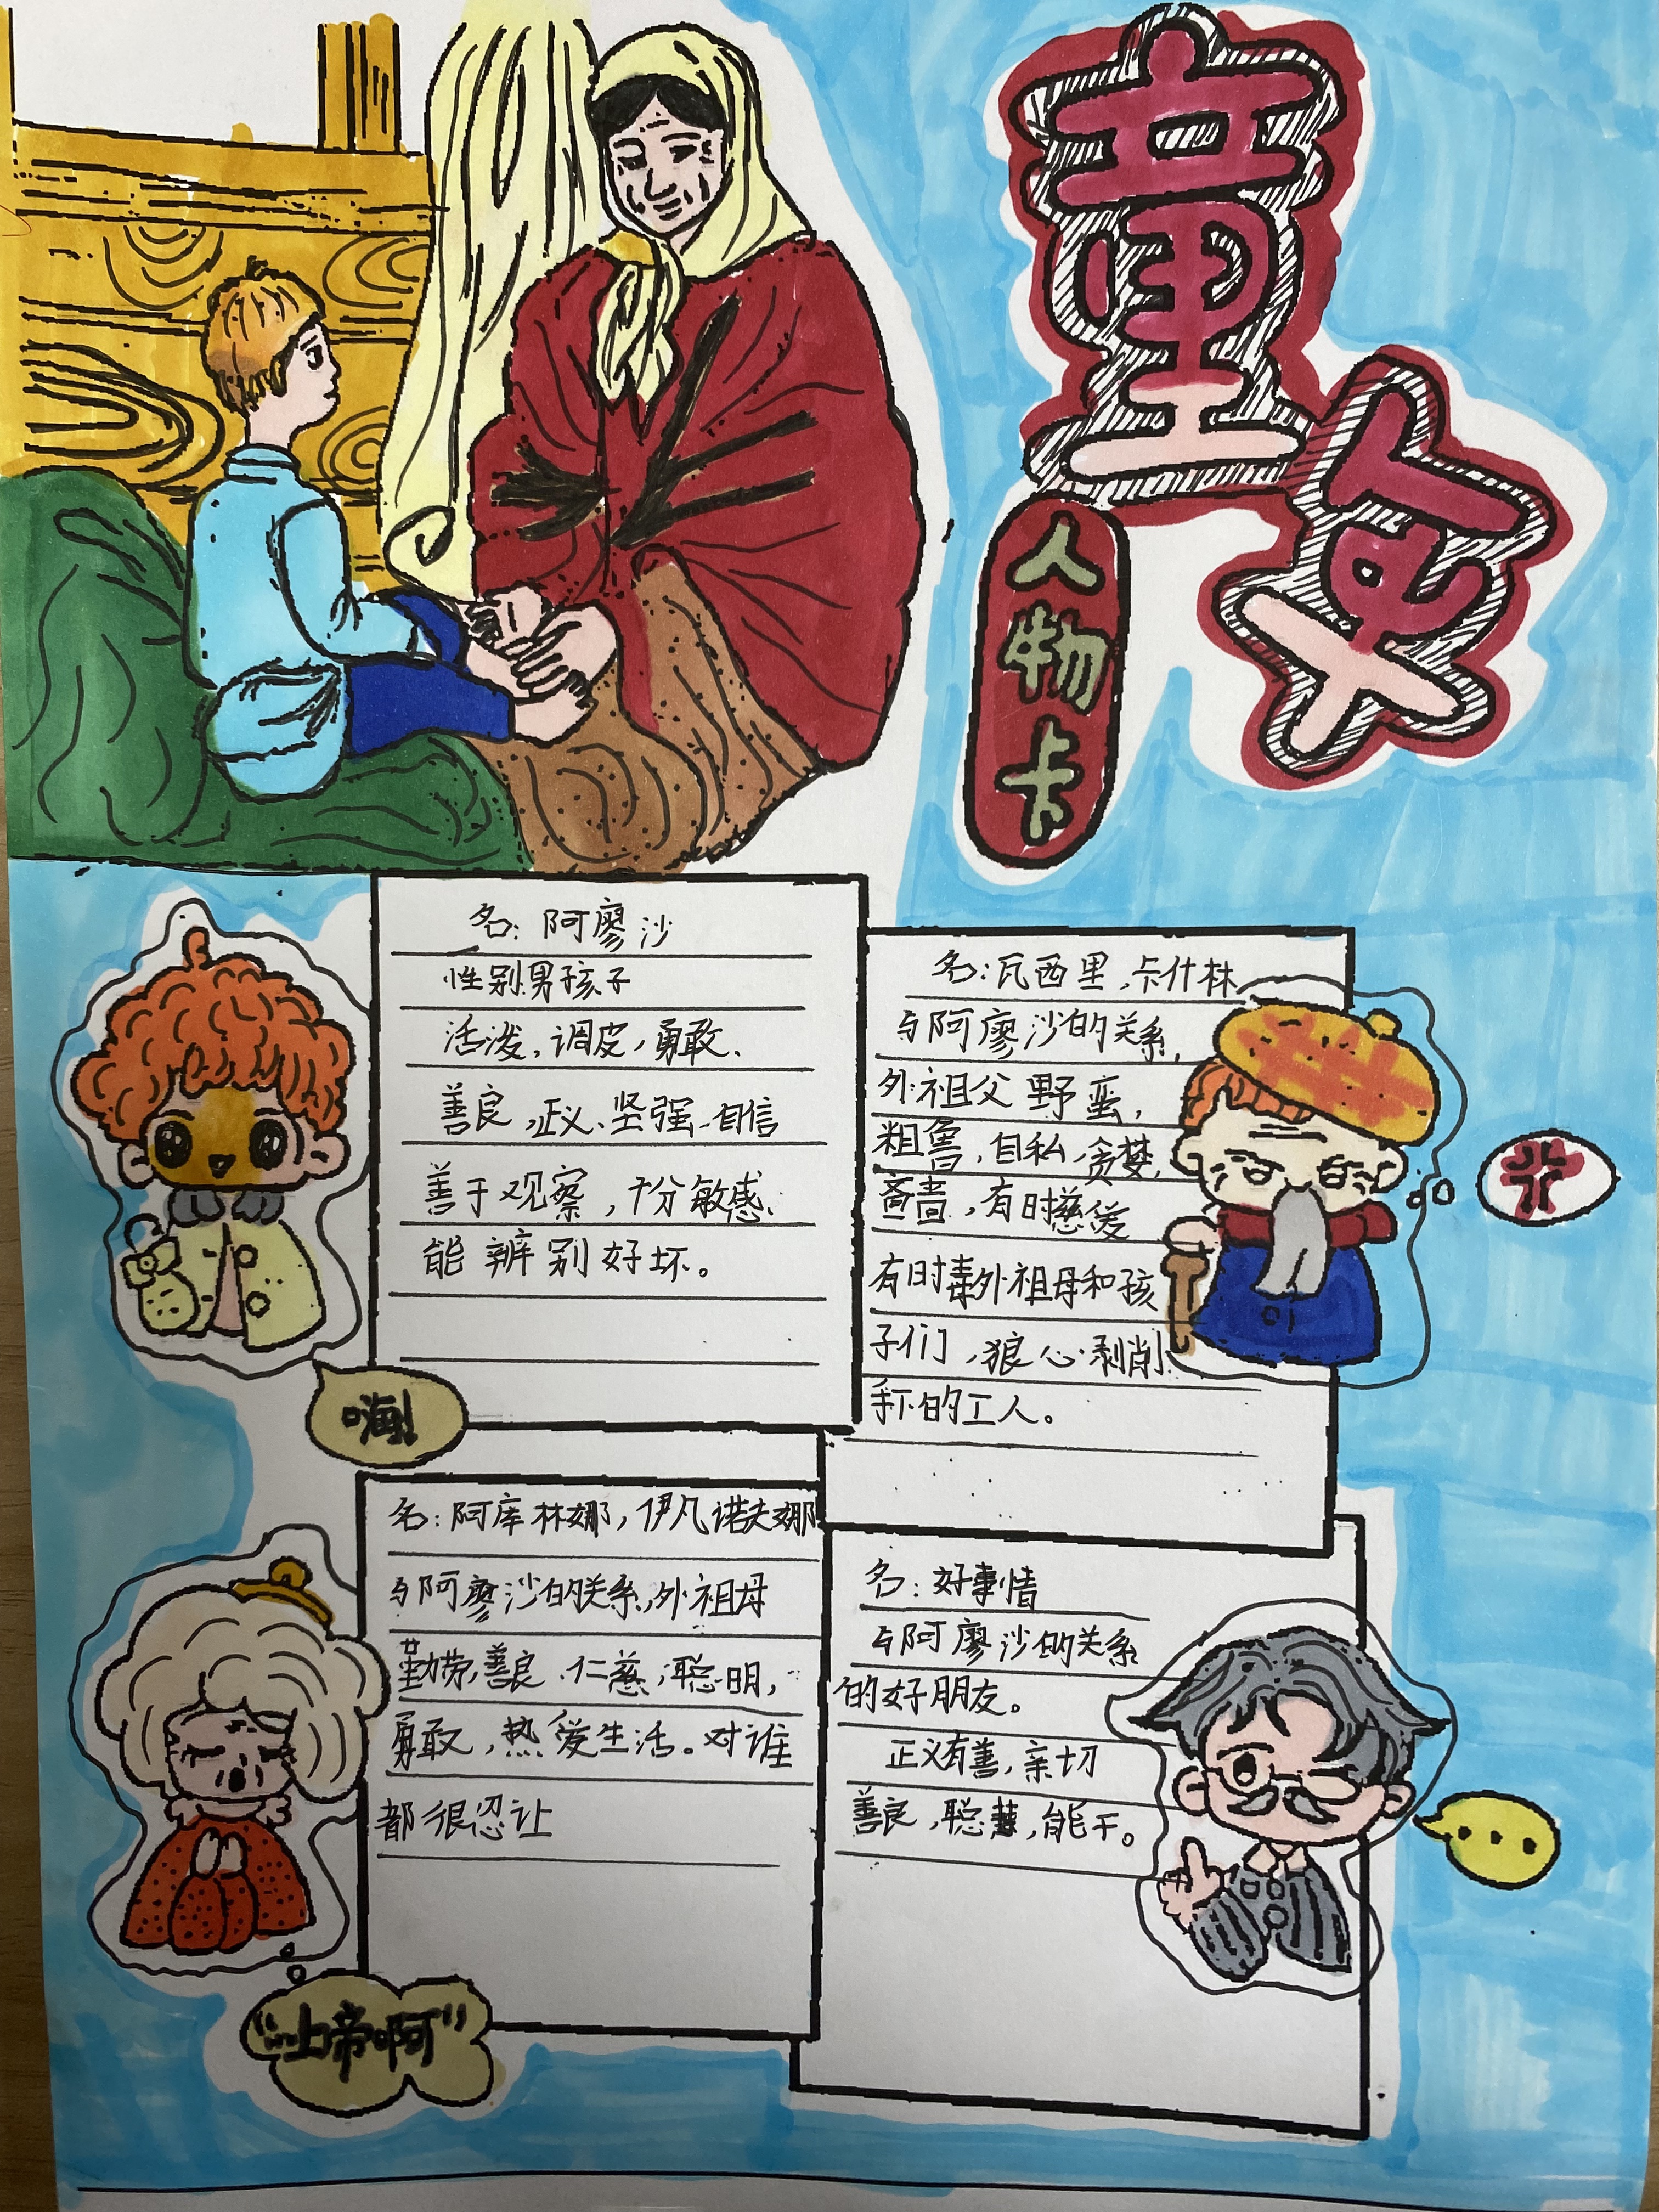 童年
人物卡
名：阿廖沙
性别男孩子
活泼，调皮，勇敢、
善良，正义、坚强、自信
善于观察，十分敏感、
能辨别好坏。
嗨！
名：瓦西里，卡什林
与阿廖沙的关系，
外祖父 野蛮，
粗鲁，自私，贪婪，
啬啬，有时慈爱
有时毒外祖母和孩
子们，狼心剥削
手下的工人。
名：阿库林娜，伊凡诺夫娜
与阿廖沙的关系，外祖母
勤劳，善良、仁慈，聪明，
勇敢，热爱生活。对谁
都很忍让
“上帝啊”
名：好事情
与阿廖沙的关系
的好朋友。
正义有善，亲切
善良，聪慧，能干。
...